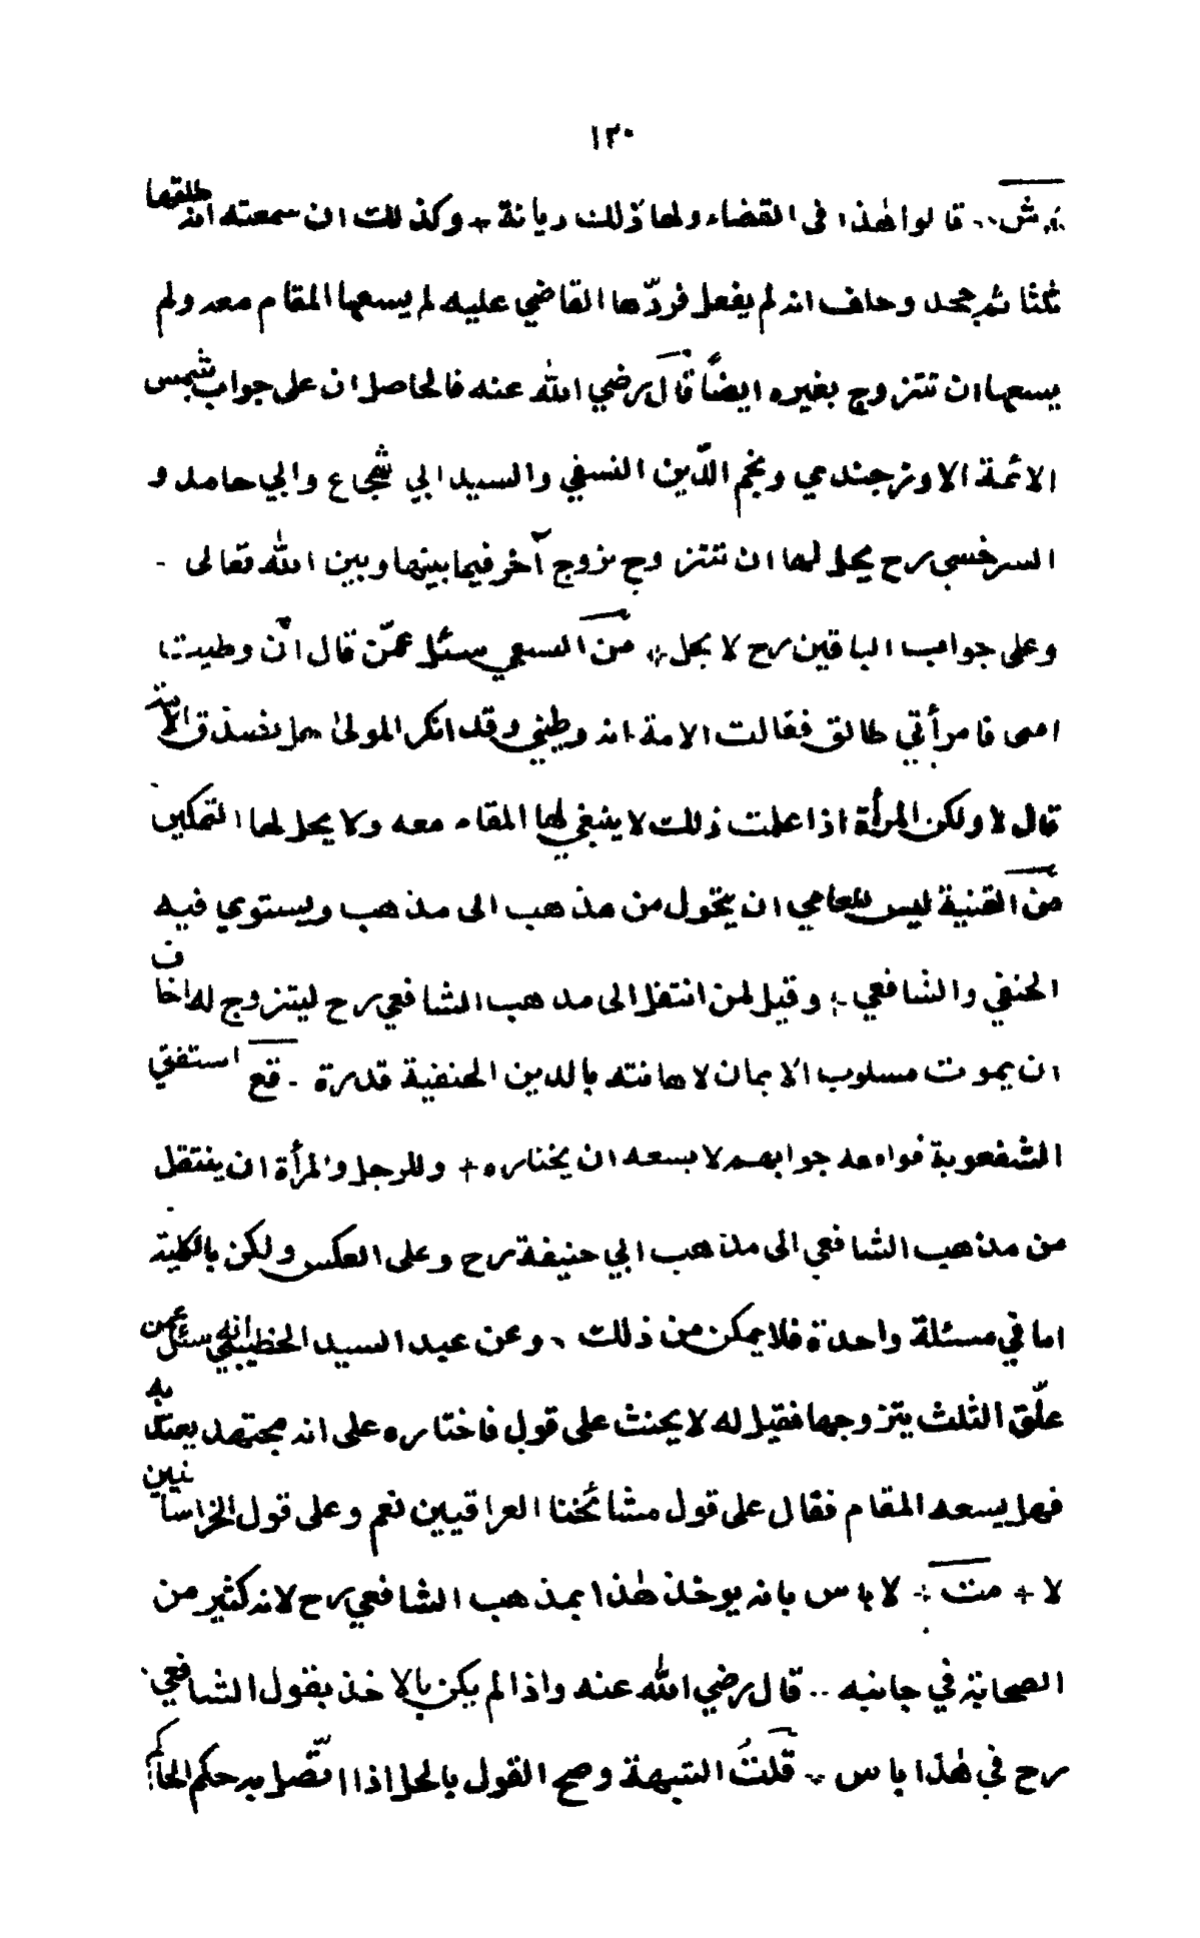 ١٢٠
قالوا هذا فى القضاء ولها ذلك ديانة + وكذلك ان سمعته انه طلقها
ثلثا ثم جحد وحلف انه لم يفعل فردّها القاضي عليه لم يسعها المقام معه ولم
يسعها ان تتزوج بغيره ايضًا قال رضي الله عنه فالحاصل ان على جواب شمس
الائمة الاوزجندي ونجم الدّين النسفي والسيد ابي شجاع وابي حامد و
السرخسي رح يحل لها ان تتزوج بزوج آخر فيما بينها وبين الله تعالى -
وعلى جواب الباقين رح لا يحل من سئل عمّن قال ان وطيت
امتى فامرأتي طالق فقالت الامة انه وطيني وقد انكر المولى هل نفسذق الامة
قال لا ولكن المرأة اذا علمت ذلك لا ينبغي لها المقام معه ولا يحل لها التمكين
من القنية ليس للعامي ان يتحول من مذهب الى مذهب ويستوي فيه
الحنفي والشافعي ؛ وقيل لمن انتقل الى مذهب الشافعي رح ليتزوج له اخاف
ان يموت مسلوب الايمان لاهانته بالدين الحنفية قدرة - قع استفتي
الشفعوية فوامعه جوابهم لا يسعه ان يختاره + وللرجل والمرأة ان ينتقل
من مذهب الشافعي الى مذهب ابي حنيفة رح وعلى العكس ولكن بالكلية
اما في مسئلة واحدة فلا يمكن من ذلك ، وعن عبد السيد الخطيبي انه سئل عمن
علّق الثلث بتزوجها فقيل له لا يحنث على قول فاختاره على انه مجتهد يعتد به
فهل يسعه المقام فقال على قول مشائخنا العراقيين نعم وعلى قول الخراسانيين
لا + مت ؛ لا باس بانه يوخذ هذا بمذهب الشافعي رح لانه كثير من
الصحابة في جانبه .. قال رضي الله عنه واذا لم يكن بالاخذ بقول الشافعي
رح في هذا باس قلتُ الشبهة وصح القول بالحل اذا اتّصل به حكم الحاكم